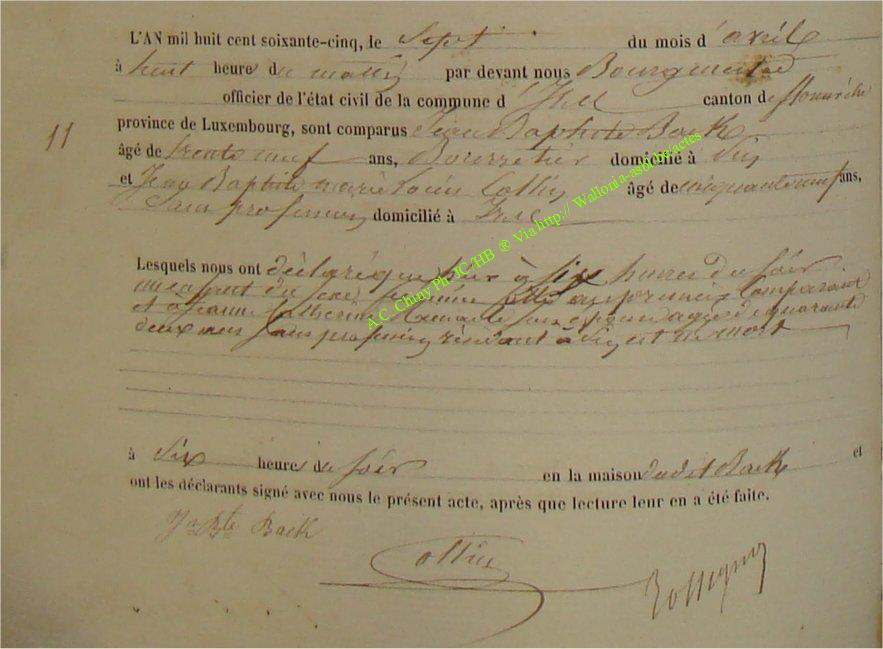 L'AN mil huit cent soixante-cinq, le Sept du mois d'avril
à huit heure du matin par devant nous Bourgmestre
officier de l'état civil de la commune d'Izel canton de Florenville
11
province de Luxembourg, sont comparus Jean Baptiste Back
âgé de trente neuf ans, domicilié à
et Jean Baptiste marie Louis Collin âgé de cinquante neuf ans,
Sans profession domicilié à Izel
Lesquels nous ont déclaré que hier à six heures du soir
un enfant du sexe au premier Comparant
et à Jeanne Catherine son épouse agée de quarante
deux ans Sans profession résidant à est né mort
à Six heures du soir en la maison dudit Back et
ont les déclarants signé avec nous le présent acte, après que lecture leur en a été faite.
Jn Bte Back
Collin
Rossignon
A.C. Chiny Ph JC HB ® Via http:// Wallonia-asbl.be actes